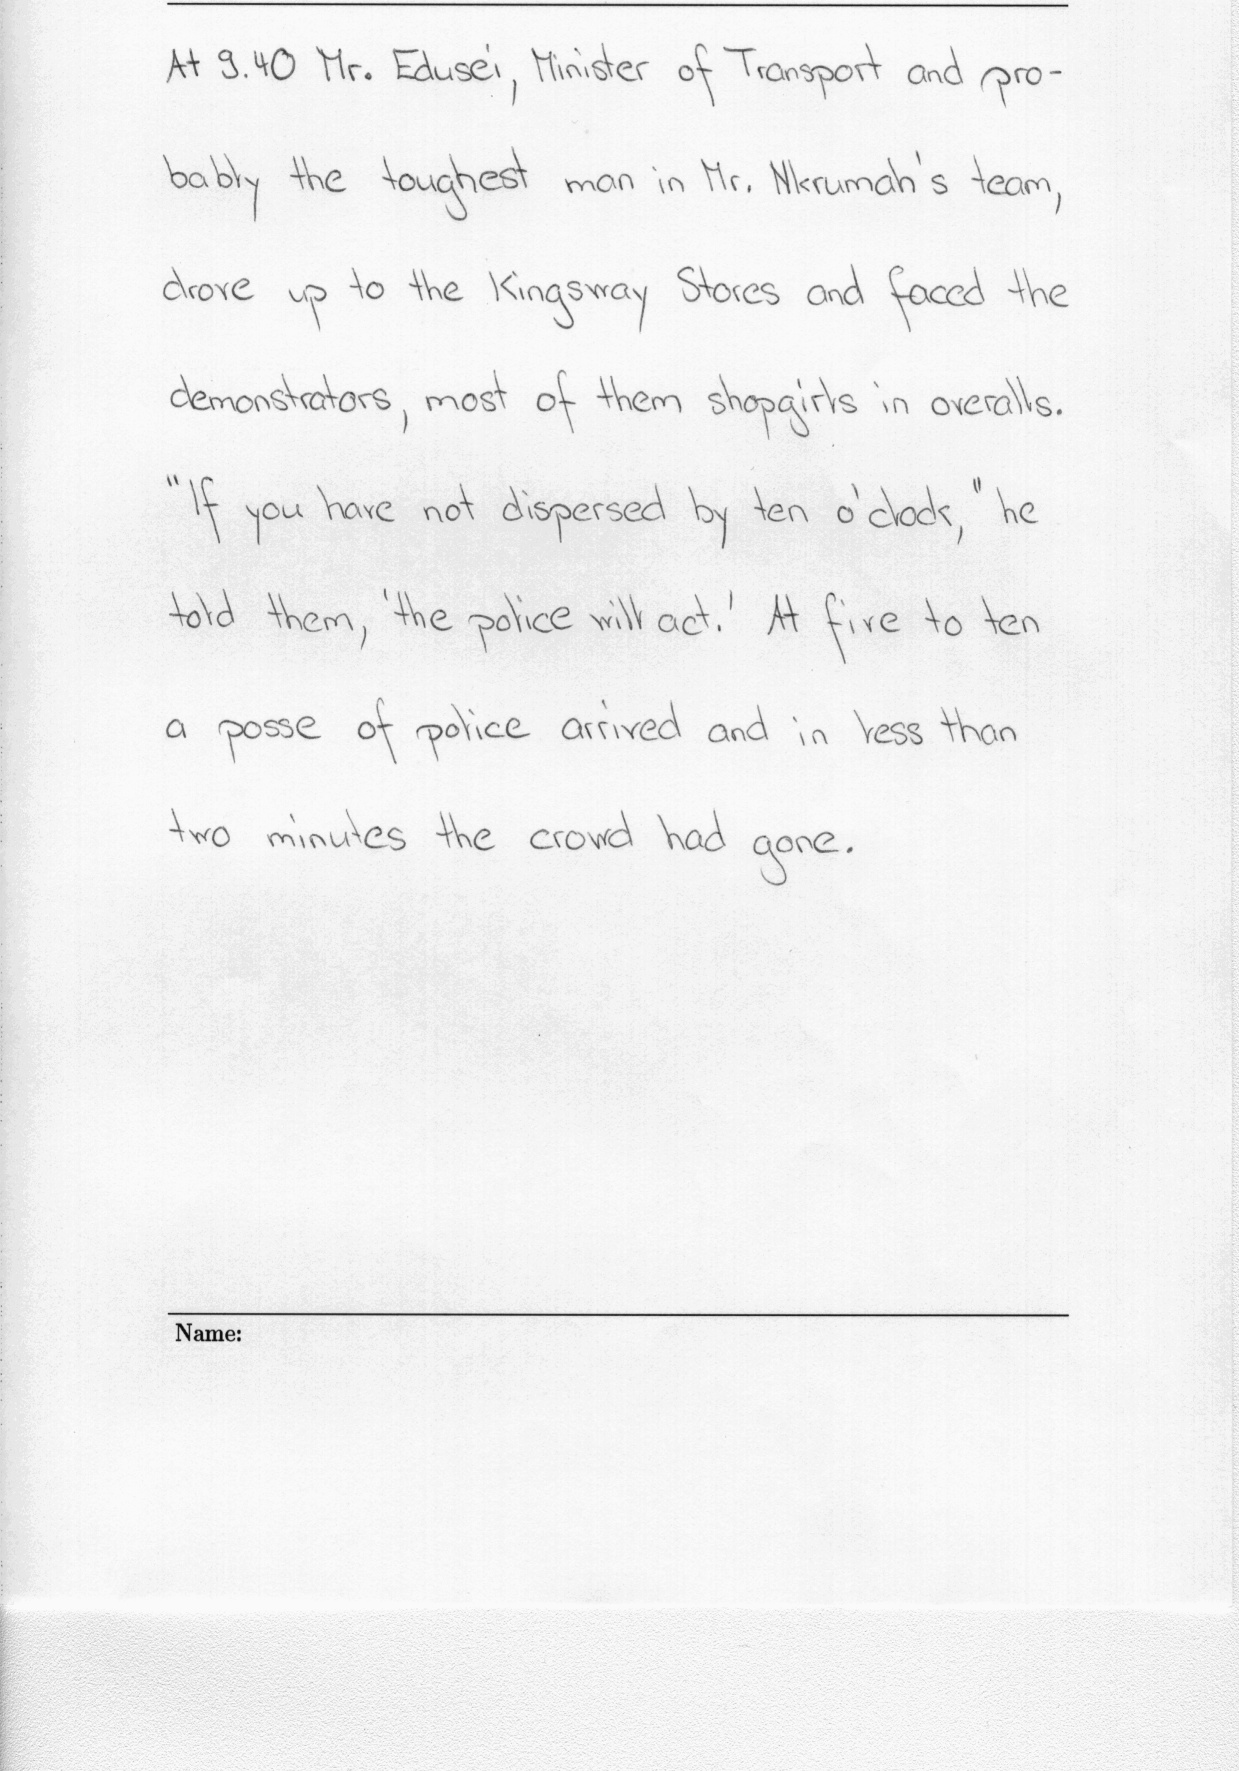 At 9.40 Mr. Edusei, Minister of Transport and pro-
bably the toughest man in Mr. Nkrumah's team,
drove up to the Kingsway Stores and faced the
demonstrators, most of them shopgirls in overalls.
"If you have not dispersed by ten o'clock," he
told them, 'the police will act.' At five to ten
a posse of police arrived and in less than
two minutes the crowd had gone.
Name: